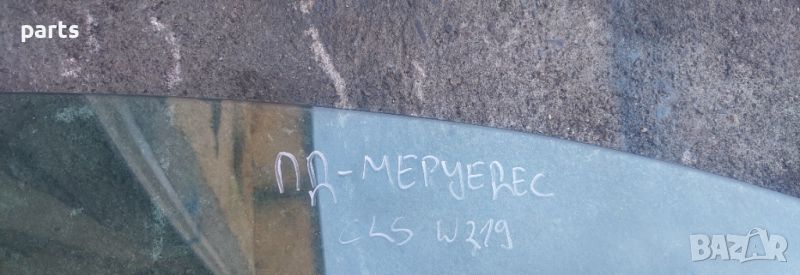 parts
ПД-МЕРЧЕДЕС
CLS W219
BAZAR